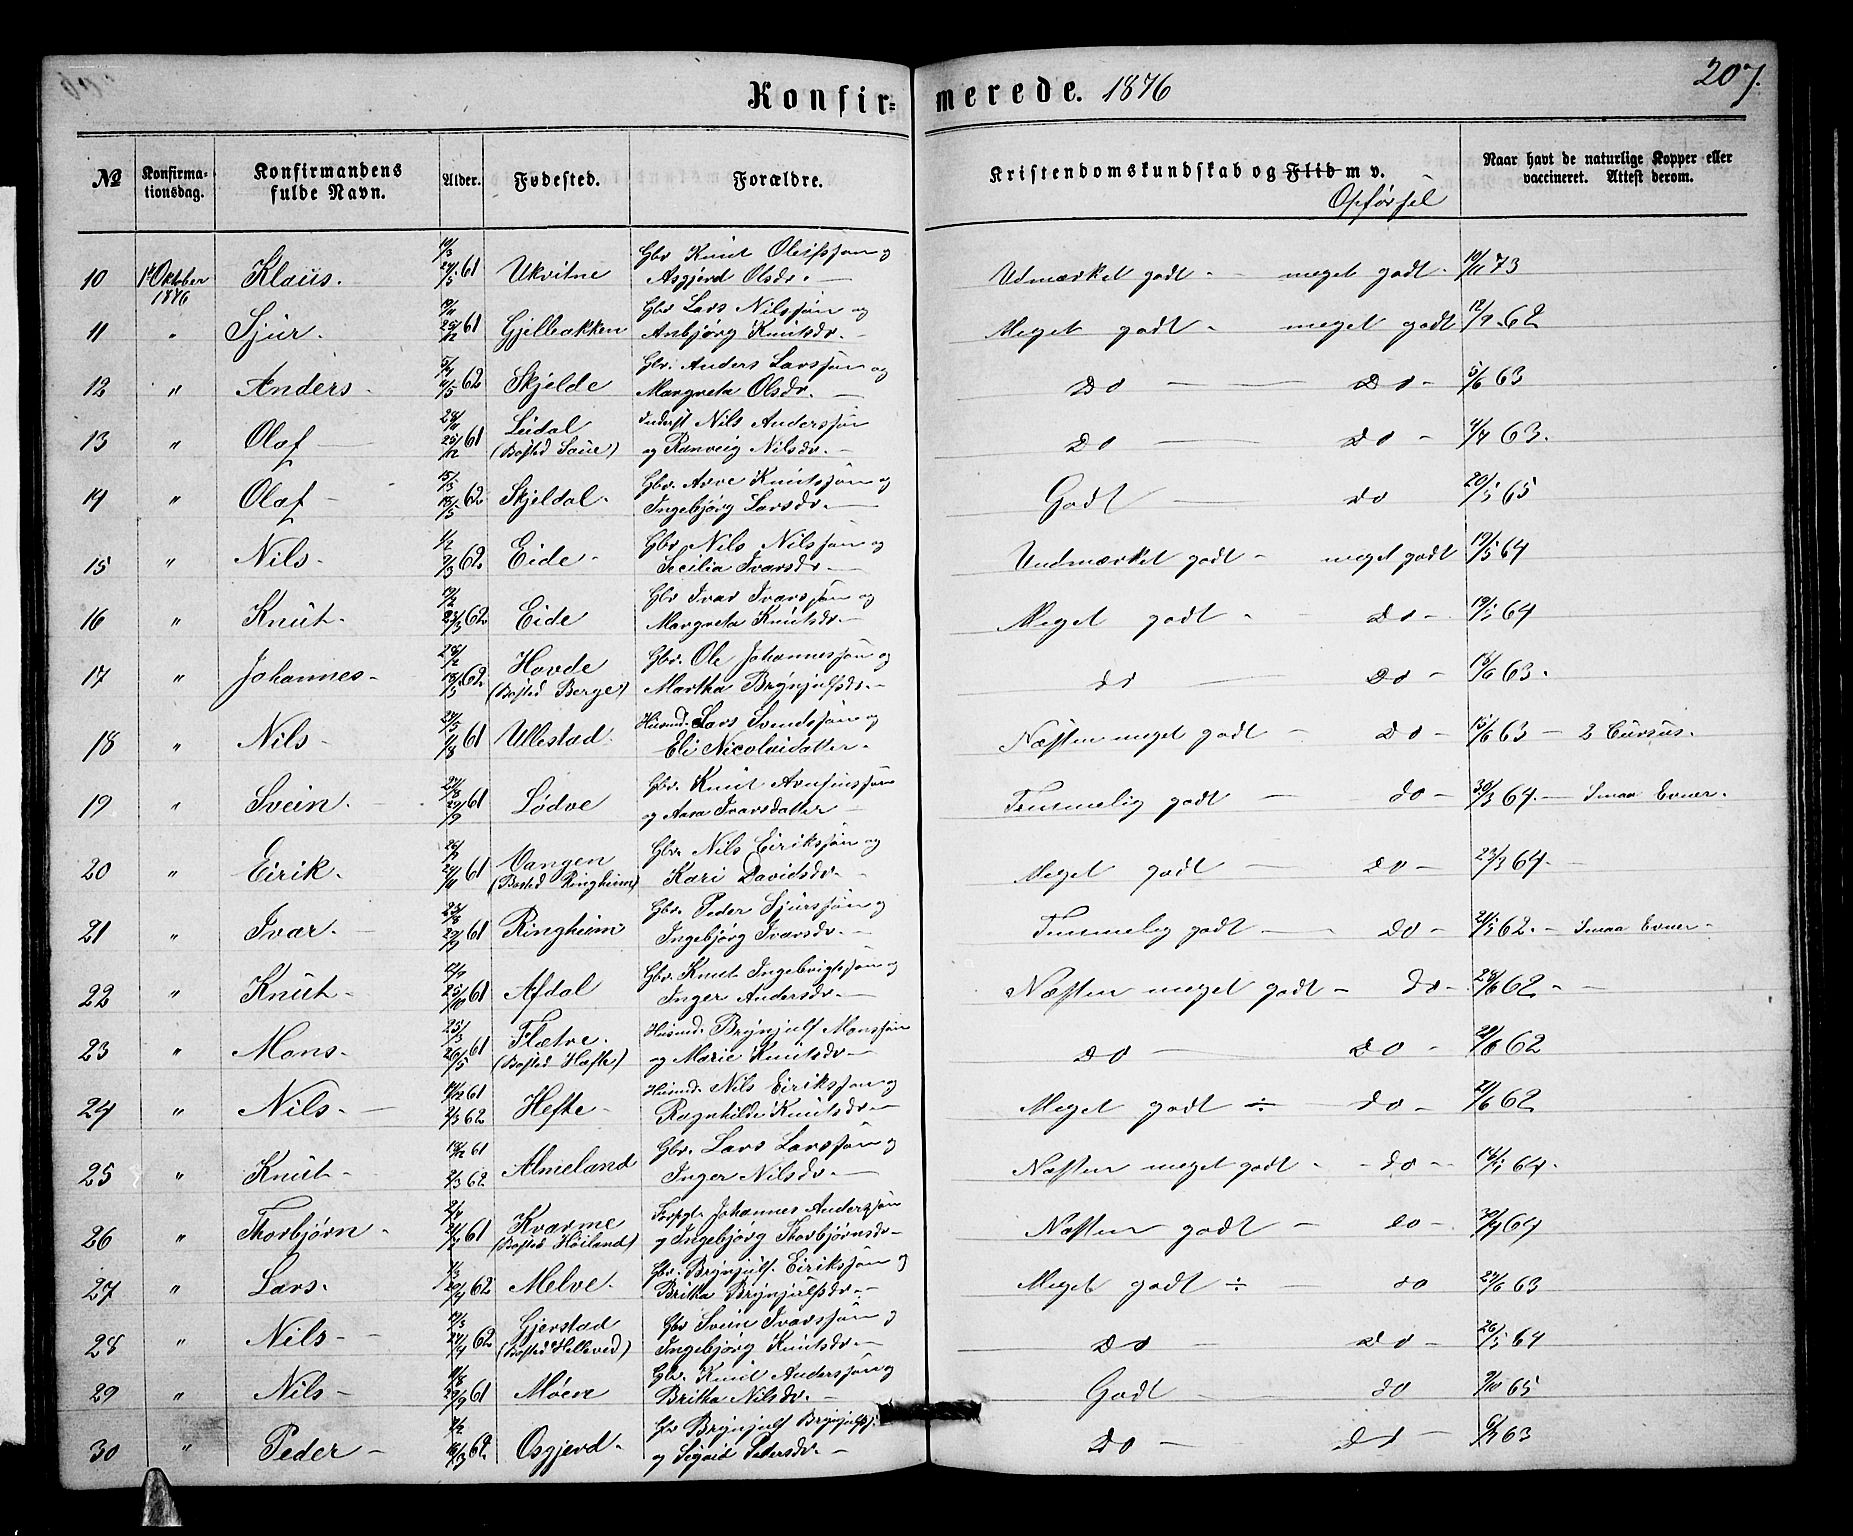 Konfir=merede. 1876
207.
№ Konfirmationsdag. Konfirmandens fulde Navn. Alder. Fødested. Forældre. Kristendomskundskab og Flid m v. Opførsel Naar havt de naturlige Kopper eller vaccineret. Attest derom.
10 1 Oktober 1876 Klaus. 61 Ukvitne Gbr Knut Oleifssøn og Asgjerd Olsdr. Udmærket godt meget godt 73
11 " Sjur. 61 Gjelbakken Gbr Lars Nilssøn og Anbjørg Knutsdr. Meget godt meget godt 12/9 62
12 " Anders 62 Skjelde Gbr. Anders Larssøn og Margreta Olsdr. Do Do 5/6 63
13 " Olaf 61 Lidal (Bosted Saue) Inderst Nils Anderssøn og Ranveig Nilsdr. Do Do 63.
14 " Olaf 62 Skjeldal Gbr. Arve Knutssøn og Ingebjørg Larsdr. Godt do 65
15 " Nils 62 Eide Gbr Nils Nilssøn og Secilia Ivarsdr. Uudmærket godt meget godt 19/5 64
16 " Knut 62 Eide Gbr Ivar Ivarssøn og Margreta Knutsdr. Meget godt Do 64
17 " Johannes 62 Hovde (Bosted Berge) Gbr. Ole Johannessøn og Martha Brynjulfsdr. do Do 63.
18 " Nils 61 Ullestad Husmd. Lars Svendssøn og Eli Nicolaidatter Næsten meget godt Do 15/6 63 2 Cursus.
19 " Svein. 61 Lødve Gbr. Knut Arnfinssøn og Aasa Ivarsdatter Temmelig godt do 30/3 64. Smaa Evner.
20 " Eirik. 61 Vangen (Bosted Ringheim) Gbr. Nils Eirikssøn og Kari Davidsdr. Meget godt Do 23/3 64.
21 " Ivar. 61 Ringheim Gbr. Peder Sjurssøn og Ingebjørg Ivarsdr. Temmelig godt Do 62. Smaa Evner
22 " Knut 61 Afdal Gbr. Knut Ingebrigtssøn og Inger Andersdr. Næsten meget godt do 28/6 62
23 " Mons 61 Flætre. (Bosted Hæfte) Husmd. Brynjulf Monssøn og Marie Knutsdr. Do Do 62
24 " Nils. 61 2/3 62 Hefte Husmd. Nils Eirikssøn og Ragnhilde Knutsdr. Meget godt ÷ do 21/6 62
25 " Knut 61 2/3 62 Almeland Gbr. Lars Larssøn og Inger Nilsdr. Næsten meget godt do 64
26 " Thorbjørn 61 Kvarme (Bosted Høiland) Forpgt. Johannes Anderssøn og Ingebjørg Thorbjørnsdr. Næsten godt do 64
27 " Lars. 62 Melve Gbr. Brynjulf. Eirikssøn og Britha Brynjulfsdr. Meget godt ÷ do 63
28 " Nils 62 Gjerstad (Bosted Helleved) Gbr Svein Ivarssøn og Ingebjørg Knutsdr. Do Do 26/5 64
29 " Nils 61 Møen Gbr. Knut Anderssøn og Britha Nilsdr. Godt do 9/10 65
30 " Peder 62 Osgjerd Gbr Brynjulf Brynjulfss. og Sigrid Pedersdr. Do Do 63